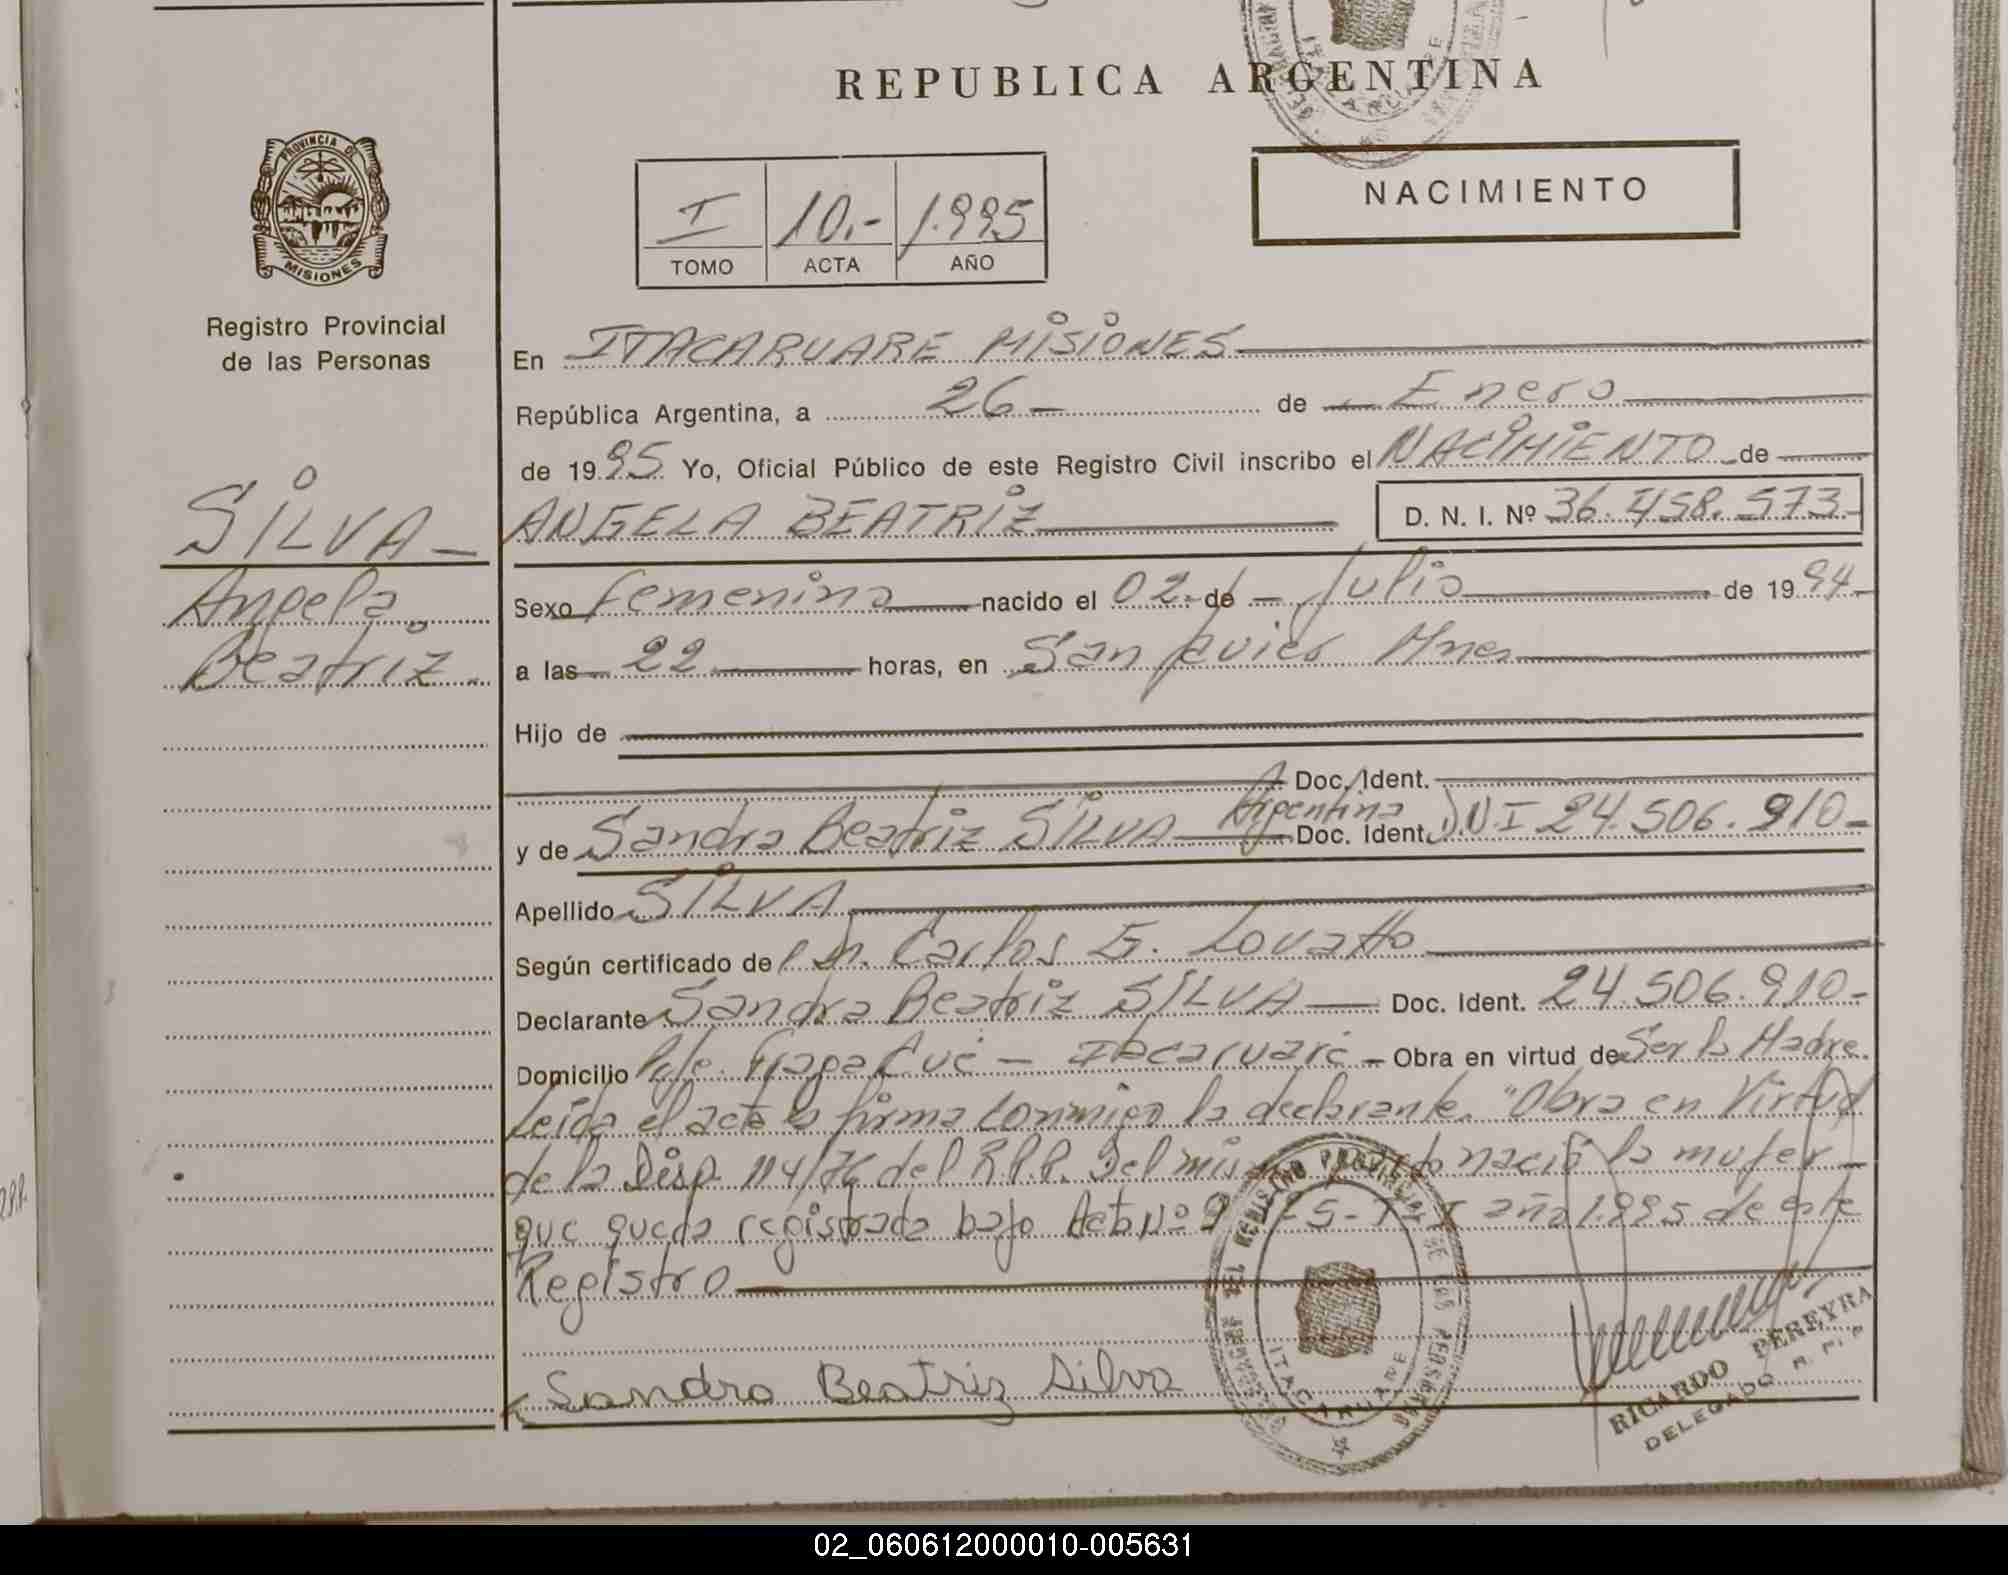 REPUBLICA ARGENTINA
PROVINCIA DE
MISIONES
Registro Provincial
de las Personas
I 10.- 1.995
TOMO ACTA AÑO
NACIMIENTO
SILVA -
Angela
Beatriz.
En ITACARUARE MISIONES
República Argentina, a 26 - de - Enero
de 1995. Yo, Oficial Público de este Registro Civil inscribo el NACIMIENTO de
ANGELA BEATRIZ D. N. I. Nº 36.458.573-
Sexo femenino nacido el 02. de - Julio de 1994-
a las 22 horas, en San Javier Mnes
Hijo de
Doc. Ident.
y de Sandra Beatriz SILVA - Argentina Doc. Ident. D.N.I 24.506.910-
Apellido SILVA
Según certificado de Carlos E. Lovatto
Declarante Sandra Beatriz SILVA - Doc. Ident. 24.506.910-
Domicilio Cué - Itacaruaré - Obra en virtud de Ser la Madre.
Leída el acta la firma conmigo la declarante. "Obra en Virtud
de la Disp. 114/76 del R.P.P. Del nació la mujer
que queda registrada bajo Acta Nº 9 año 1.995 de este
Registro
Sandra Beatriz Silva
REGISTRO PROVINCIAL DE LAS PERSONAS
ITACARUARE
RICARDO PEREYRA
DELEGADO R. P. P
02_060612000010-005631